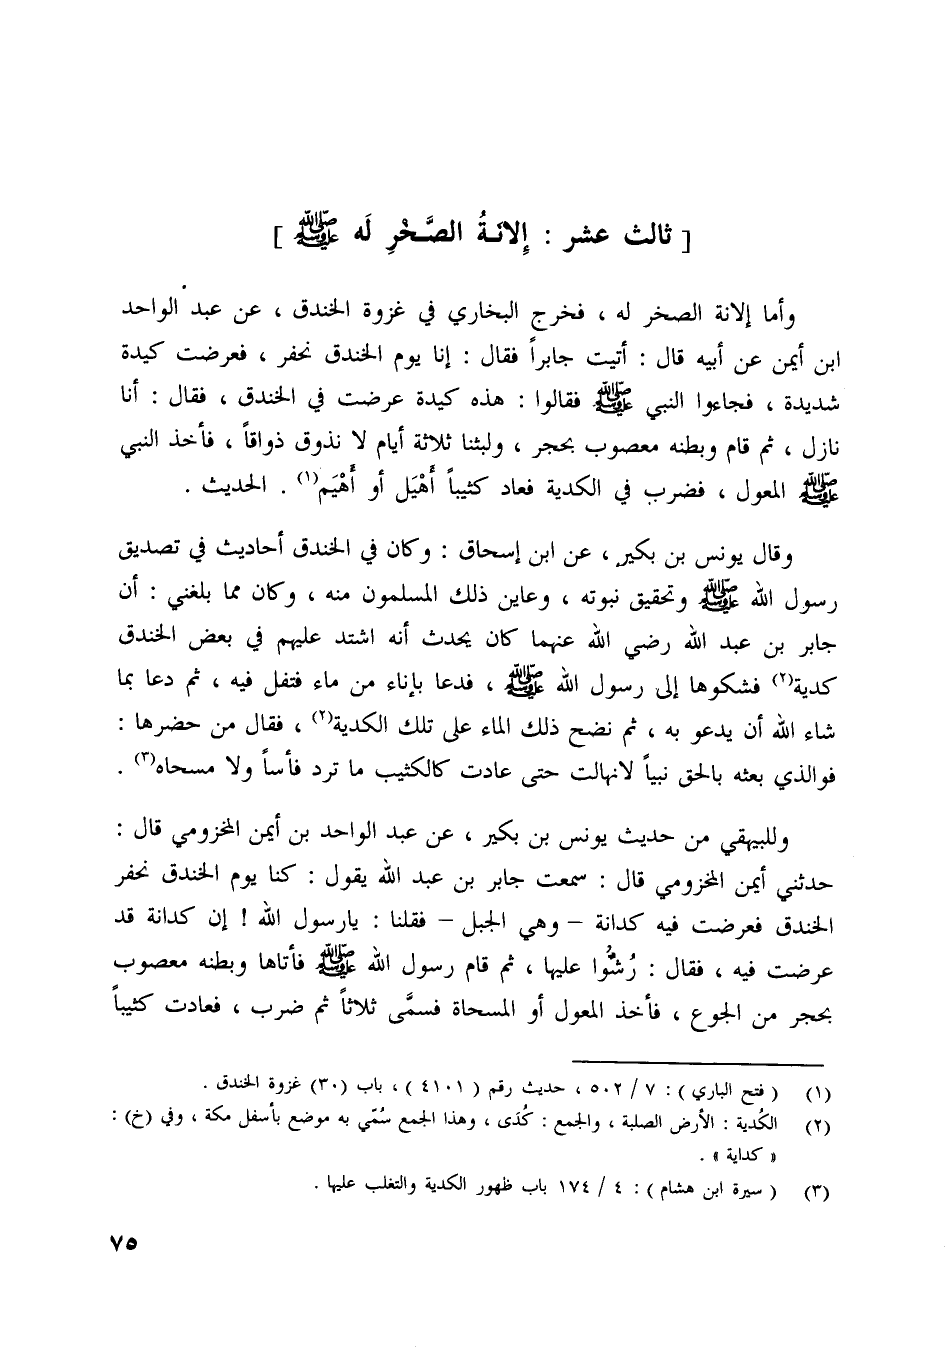 [ ثالث عشر : إِلانَـةُ الصَّـخْرِ لَه ﷺ ]
وأما إلانة الصخر له ، فخرج البخاري في غزوة الخندق ، عن عبد الواحد
ابن أيمن عن أبيه قال : أتيت جابراً فقال : إنا يوم الخندق نحفر ، فعرضت كيدة
شديدة ، فجاءوا النبي ﷺ فقالوا : هذه كيدة عرضت في الخندق ، فقال : أنا
نازل ، ثم قام وبطنه معصوب بحجر ، ولبثنا ثلاثة أيام لا نذوق ذواقاً ، فأخذ النبي
ﷺ المعول ، فضرب في الكدية فعاد كثيباً أَهْيَل أو أَهْيَم(١) . الحديث .
وقال يونس بن بكير ، عن ابن إسحاق : وكان في الخندق أحاديث في تصديق
رسول الله ﷺ وتحقيق نبوته ، وعاين ذلك المسلمون منه ، وكان مما بلغني : أن
جابر بن عبد الله رضي الله عنهما كان يحدث أنه اشتد عليهم في بعض الخندق
كدية(٢) فشكوها إلى رسول الله ﷺ ، فدعا بإناء من ماء فتفل فيه ، ثم دعا بما
شاء الله أن يدعو به ، ثم نضح ذلك الماء على تلك الكدية(٢) ، فقال من حضرها :
فوالذي بعثه بالحق نبياً لانهالت حتى عادت كالكثيب ما ترد فأساً ولا مسحاه(٣) .
وللبيهقي من حديث يونس بن بكير ، عن عبد الواحد بن أيمن المخزومي قال :
حدثني أيمن المخزومي قال : سمعت جابر بن عبد الله يقول : كنا يوم الخندق نحفر
الخندق فعرضت فيه كدانة – وهي الجبل – فقلنا : يارسول الله ! إن كدانة قد
عرضت فيه ، فقال : رُشُّوا عليها ، ثم قام رسول الله ﷺ فأتاها وبطنه معصوب
بحجر من الجوع ، فأخذ المعول أو المسحاة فسمَّى ثلاثاً ثم ضرب ، فعادت كثيباً
(١) ( فتح الباري ) : ٧ / ٥٠٢ ، حديث رقم ( ٤١٠١ ) ، باب (٣٠) غزوة الخندق .
(٢) الكُدية : الأرض الصلبة ، والجمع : كُدَى ، وهذا الجمع سُمّي به موضع بأسفل مكة ، وفي (خ) :
« كداية » .
(٣) ( سيرة ابن هشام ) : ٤ / ١٧٤ باب ظهور الكدية والتغلب عليها .
٧٥